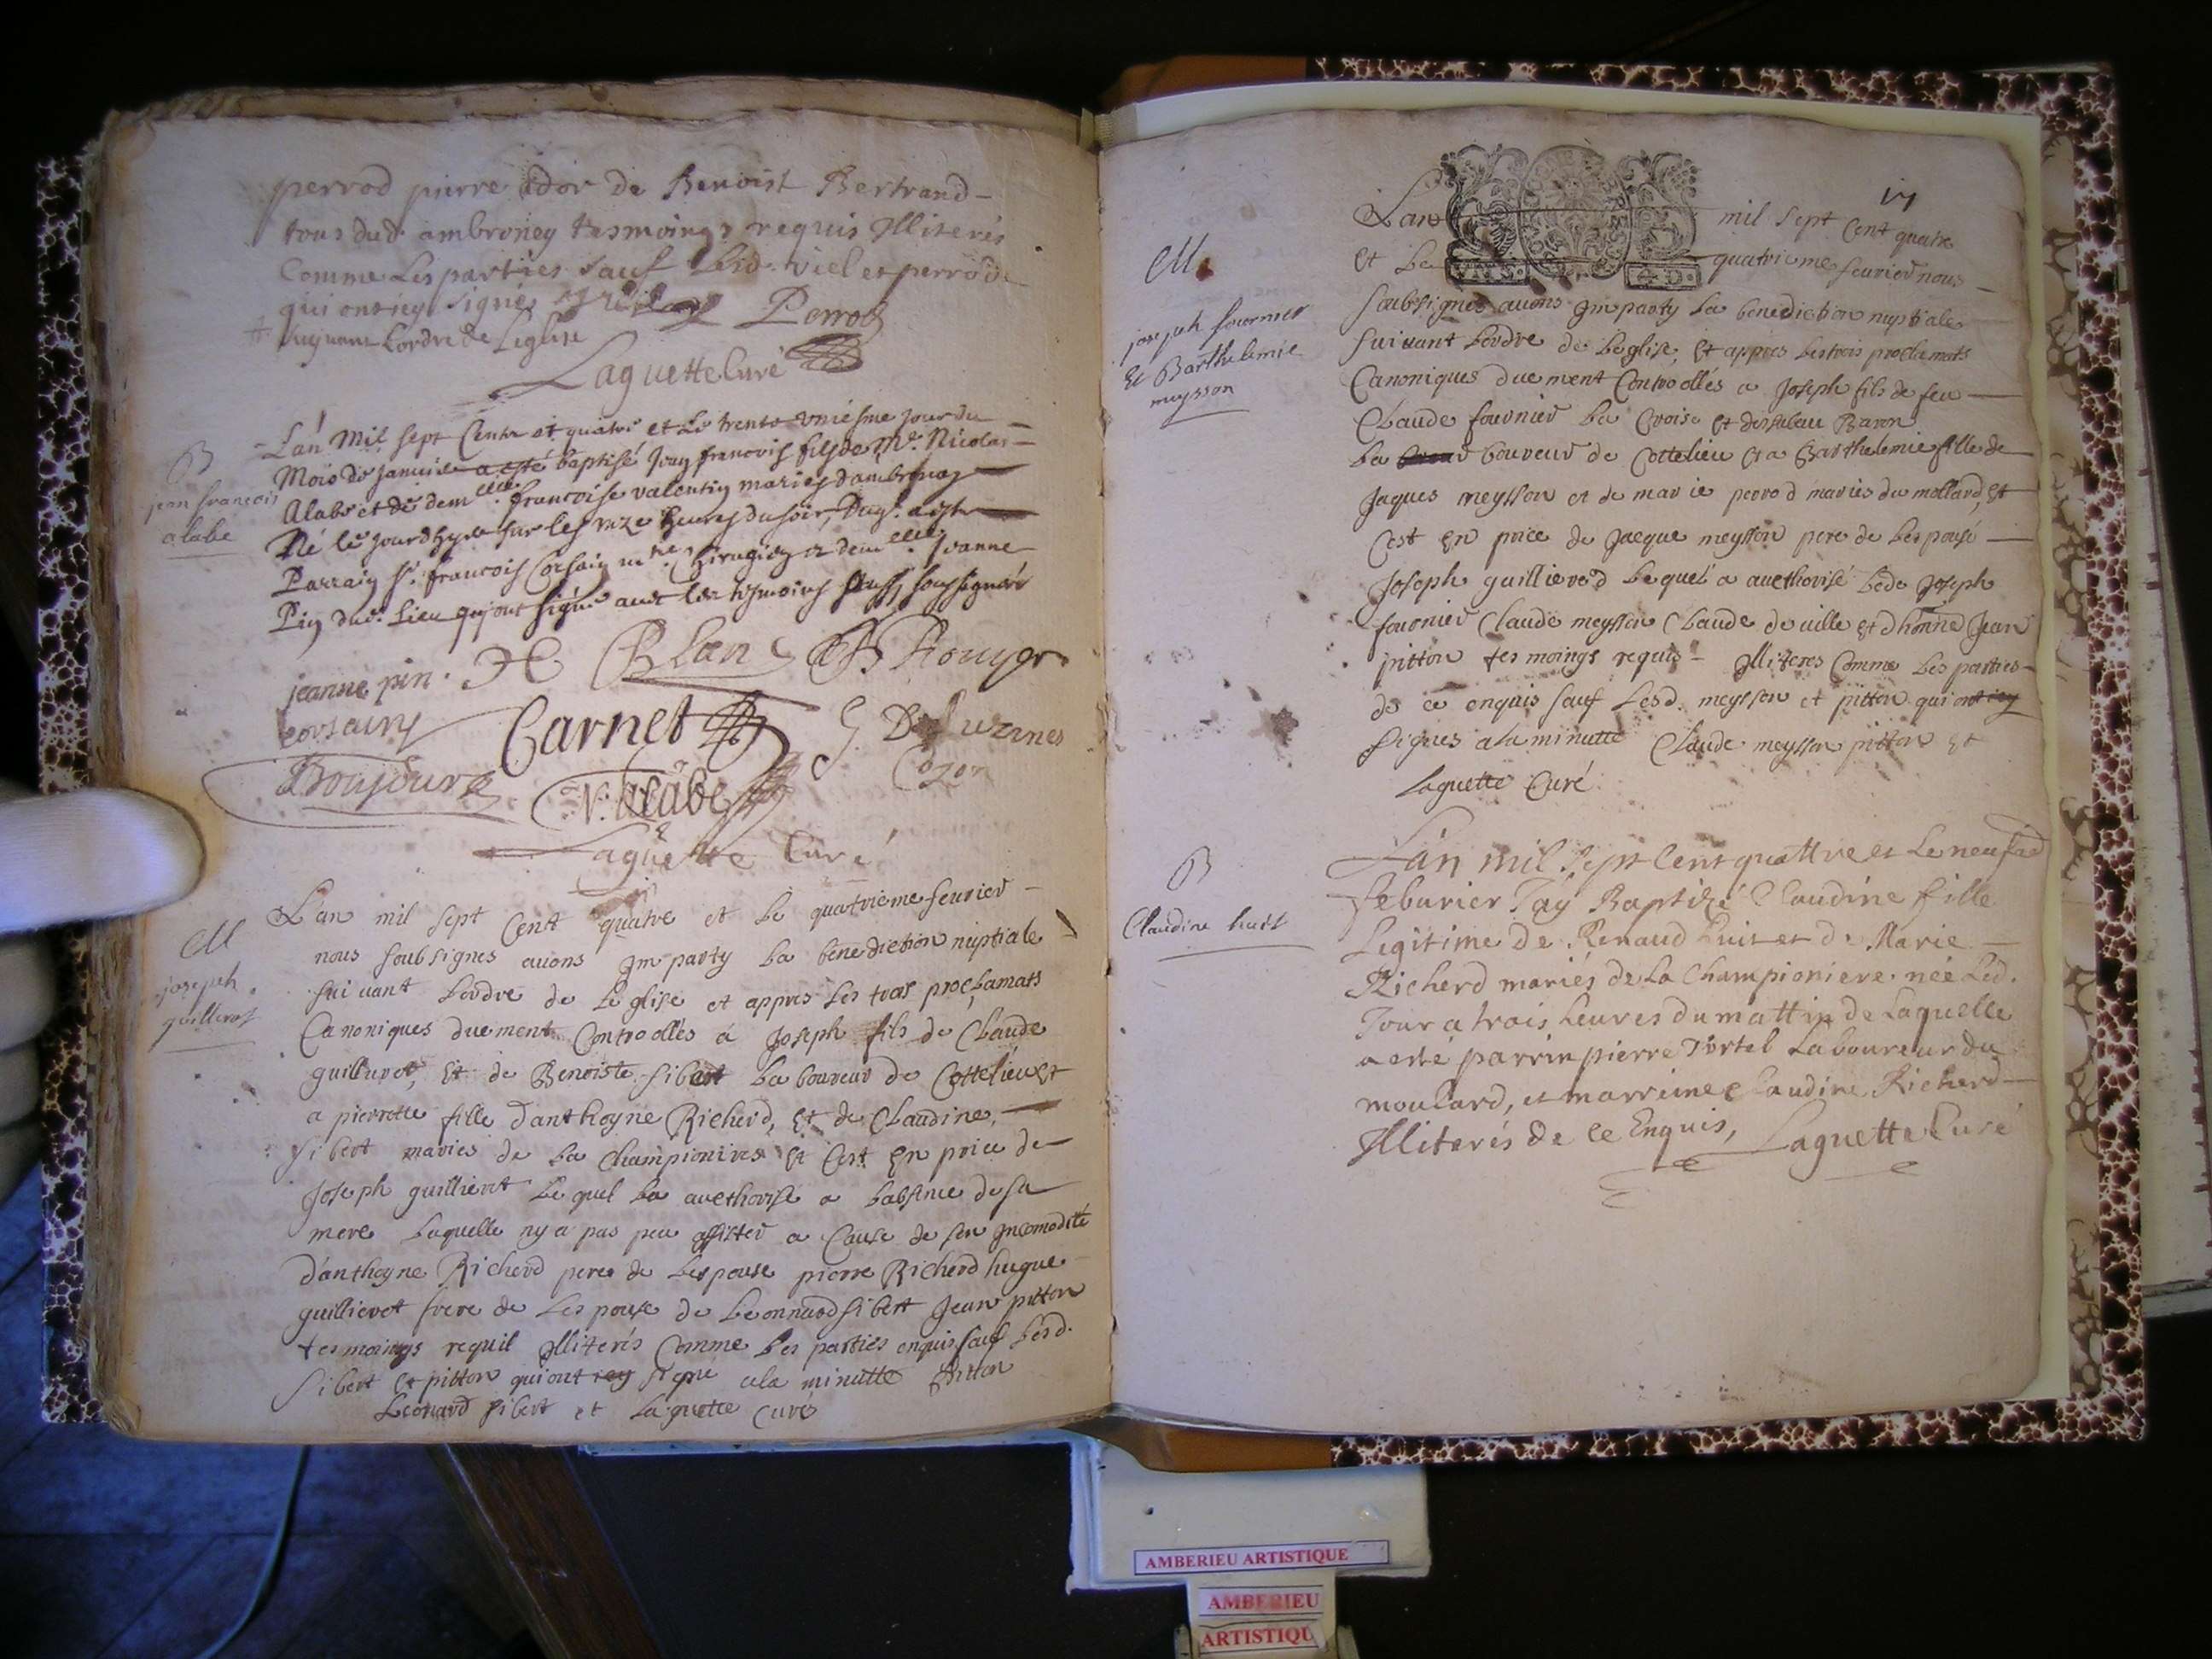 perrod pierre ador de Benoist Bertrand
tous dud. ambroney tesmoings requis Illiterés
Comme Les parties sauf Lesd. viel et perrod
qui ont icy signés Perrod
suyvant Lordre de Leglise
Laguette Curé
B
jean francois
alabe
L'an Mil sept Cents et quatre et Le trente uniesme jour du
Mois de janvier a esté baptisé Jean francois fils de Me. Nicolas
Alabe et de demlle. francoise valentin mariés dambronay
Né le jourdhyer sur les unze heures du soir, Duq. a este
Parrain Sr. francois Corsain mtre. Chirugien et demlle. Jeanne
Pin dud. Lieu qui ont signé avec les tesmoins soussignés
jeanne pin. Blanc B Rouyer
corsain Carnet
Boujour N. alabe Cozon
Laguette Curé
M
joseph
guillerot
L'an mil sept Cent quatre et Le quatrieme feuvrier
nous soubsignes avons Imparty La benediction nuptiale
suivant Lordre de Leglise et appres Les trois proclamats
Canoniques duement Controollés a Joseph fils de Claude
guillierot, Et de Benoiste sibert Laboureur de Cottelieu Et
a pierrette fille danthoyne Richerd, Et de Claudine
sibert mariés de La Championiere Et Cest En price de
Joseph guillierot Lequel La aucthorise a Labsence de sa
mere Laquelle ny a pas peu assister a Cause de son Incomodité
d'anthoyne Richerd pere de Lespouse pierre Richerd hugue
guillierot frere de Lespouse de Leonnard sibert Jean pitton
tesmoings requis Illiterés Comme Les parties enquis sauf Lesd.
sibert Et pitton qui ont icy signé a la minutte pitton
Leonard sibert et Laguette curé
M
joseph fournier
Et Barthelemie
meysson
17
Lan mil sept Cent quatre
Et Le quatrieme feuvrier nous
soubsignes avons Imparty La benediction nuptiale
suivant Lordre de Leglise, Et appres Les trois proclamats
Canoniques duement Controollés a Joseph fils de feu
Claude fournier La Croise Et Baron
La boureur de Cottelieu Et a Barthelemie fille de
Jaques meysson et de marie perrod mariés du mollard, Et
Cest En price de Jacque meysson pere de Lespouse
Joseph guillierod Lequel a aucthorisé Led. Joseph
fournier Claude meysson Claude deville Et dhonne Jean
pitton tesmoings requis Illiteres Comme Les parties
de ce enquis sauf Lesd. meysson et pitton qui ont icy
signes a la minutte Claude meysson pitton Et
Laguette Curé
B
Claudine huit
L'an mil sept Cent quattre et Le neuf
feburier J'ay Baptizé Claudine fille
Legitime de Renaud huit et de Marie
Richerd mariés de La Championiere. née Led.
Jour a trois heures du mattin de Laquelle
a esté parrin pierre Tortel Laboureur du
moulard, et marrinne Claudine Richerd
Illiterés de ce Enquis, Laguette Curé
AMBERIEU ARTISTIQUE
AMBERIEU
ARTISTIQU